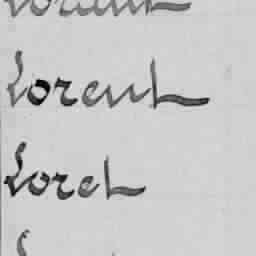 Lorent
Loret